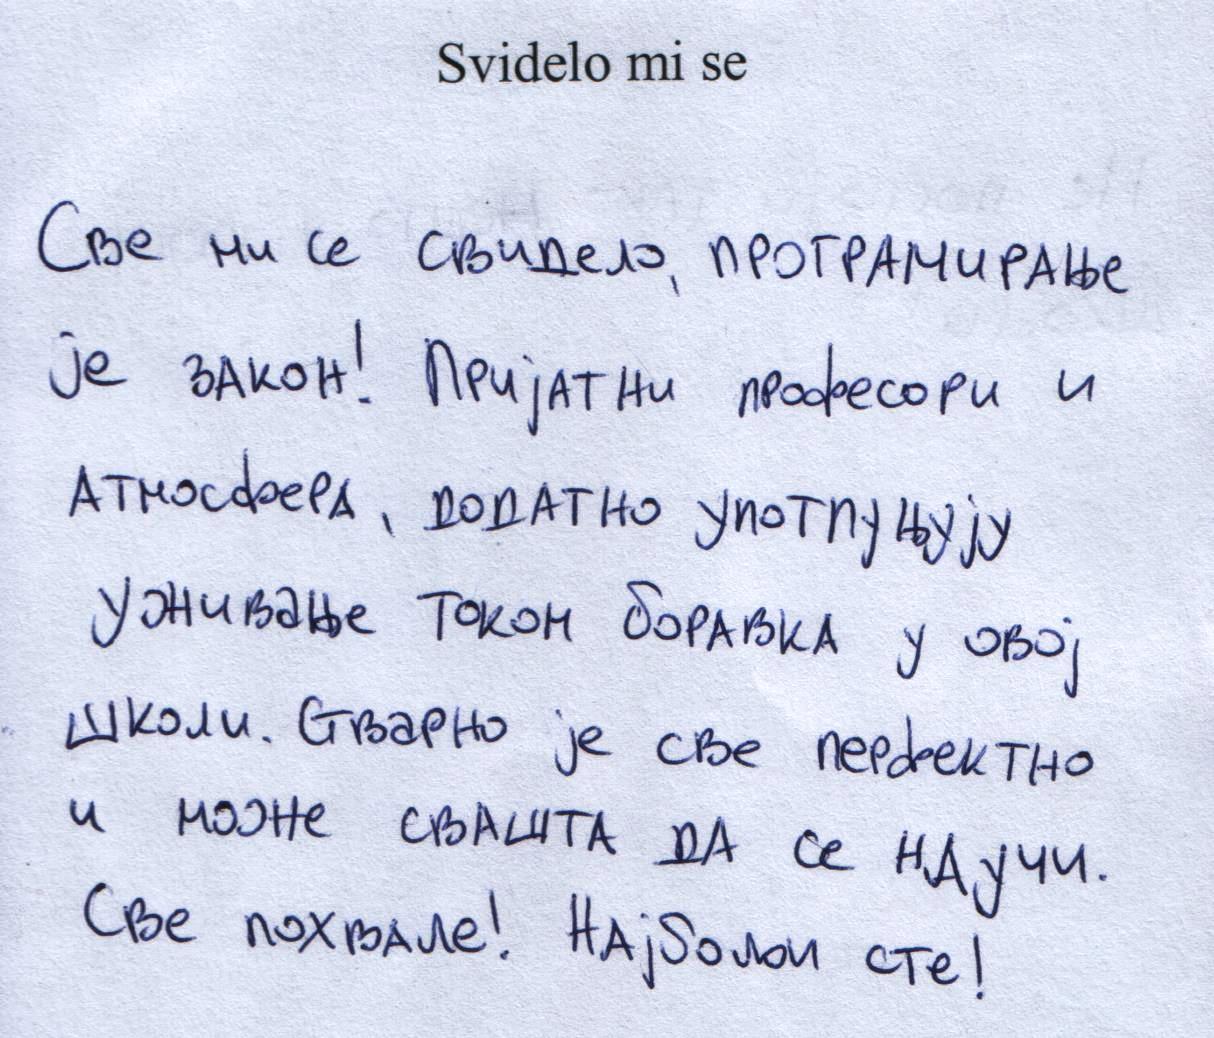 Svidelo mi se
Све ми се свидело, програмирање
је закон! Пријатни професори и
атмосфера, додатно употпуњују
уживање током боравка у овој
школи. Стварно је све перфектно
и може свашта да се научи.
Све похвале! Најбољи сте!